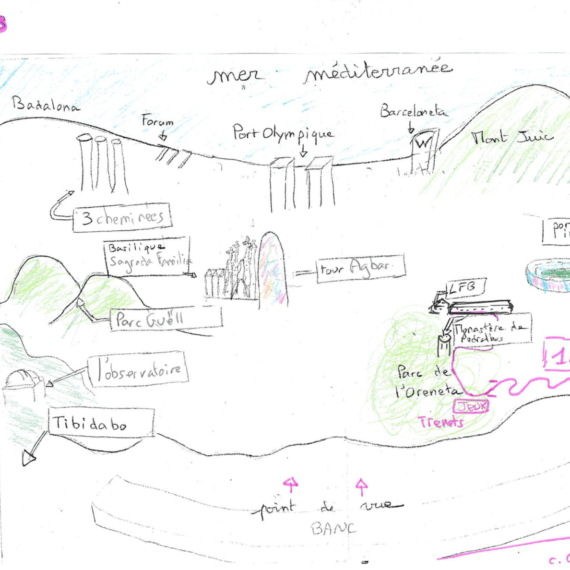 mer méditerranée
Badalona
Forum
Port Olympique
Barceloneta
W
Mont Juic
3 cheminées
Basilique
Sagrada Familia
tour Agbar
LFB
Parc Guëll
Monastère de
Pedralbes
l'observatoire
Parc de
l'Oreneta
1
JEUX
Tibidabo
Trenets
point de vue
BANC